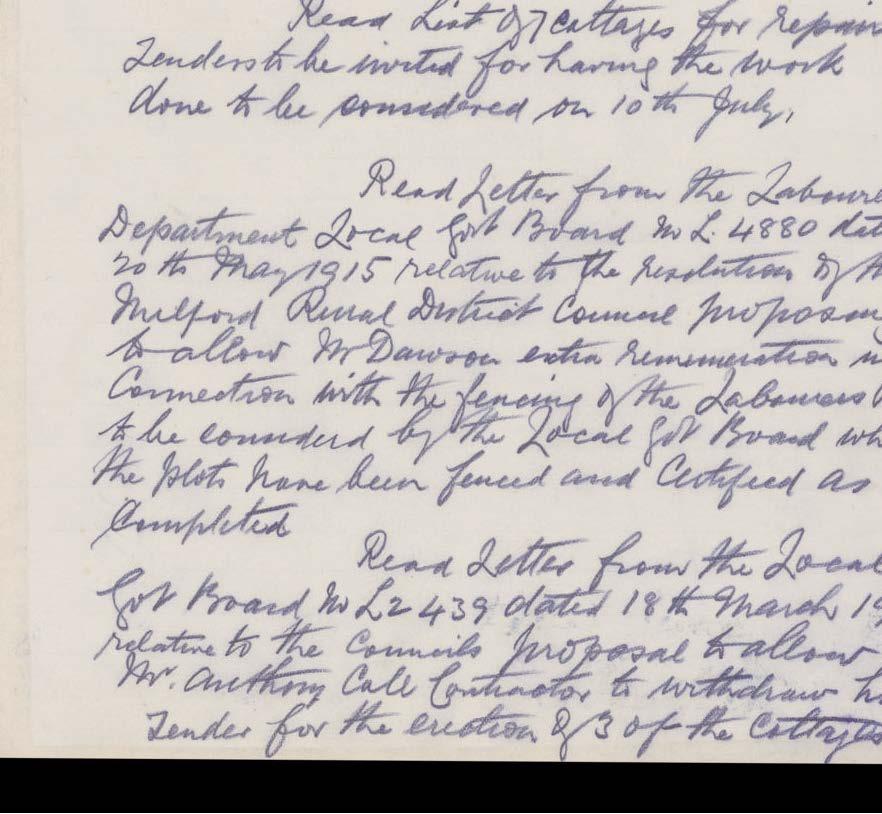 Read List of 7 cottages for repair
Tenders to be invited for having the work
done to be considered on 10th July,
Read Letter from the Laboure
Department Local Govt Board No L. 4880 dat
20th May 1915 relative to the resolution of th
Milford Rural District Council proposin
to allow Mr Dawson extra remuneration in
Connection with the fencing of the Labourers
to be considerd by the Local Govt Board wh
the plots have been fenced and Certified as
Completed
Read Letter from the Local
Govt Board No L2439 dated 18th March 19
relative to the Councils proposal to allow
Mr. Anthony Call Contractor to withdraw hi
Tender for the erection of 3 of the Cottages